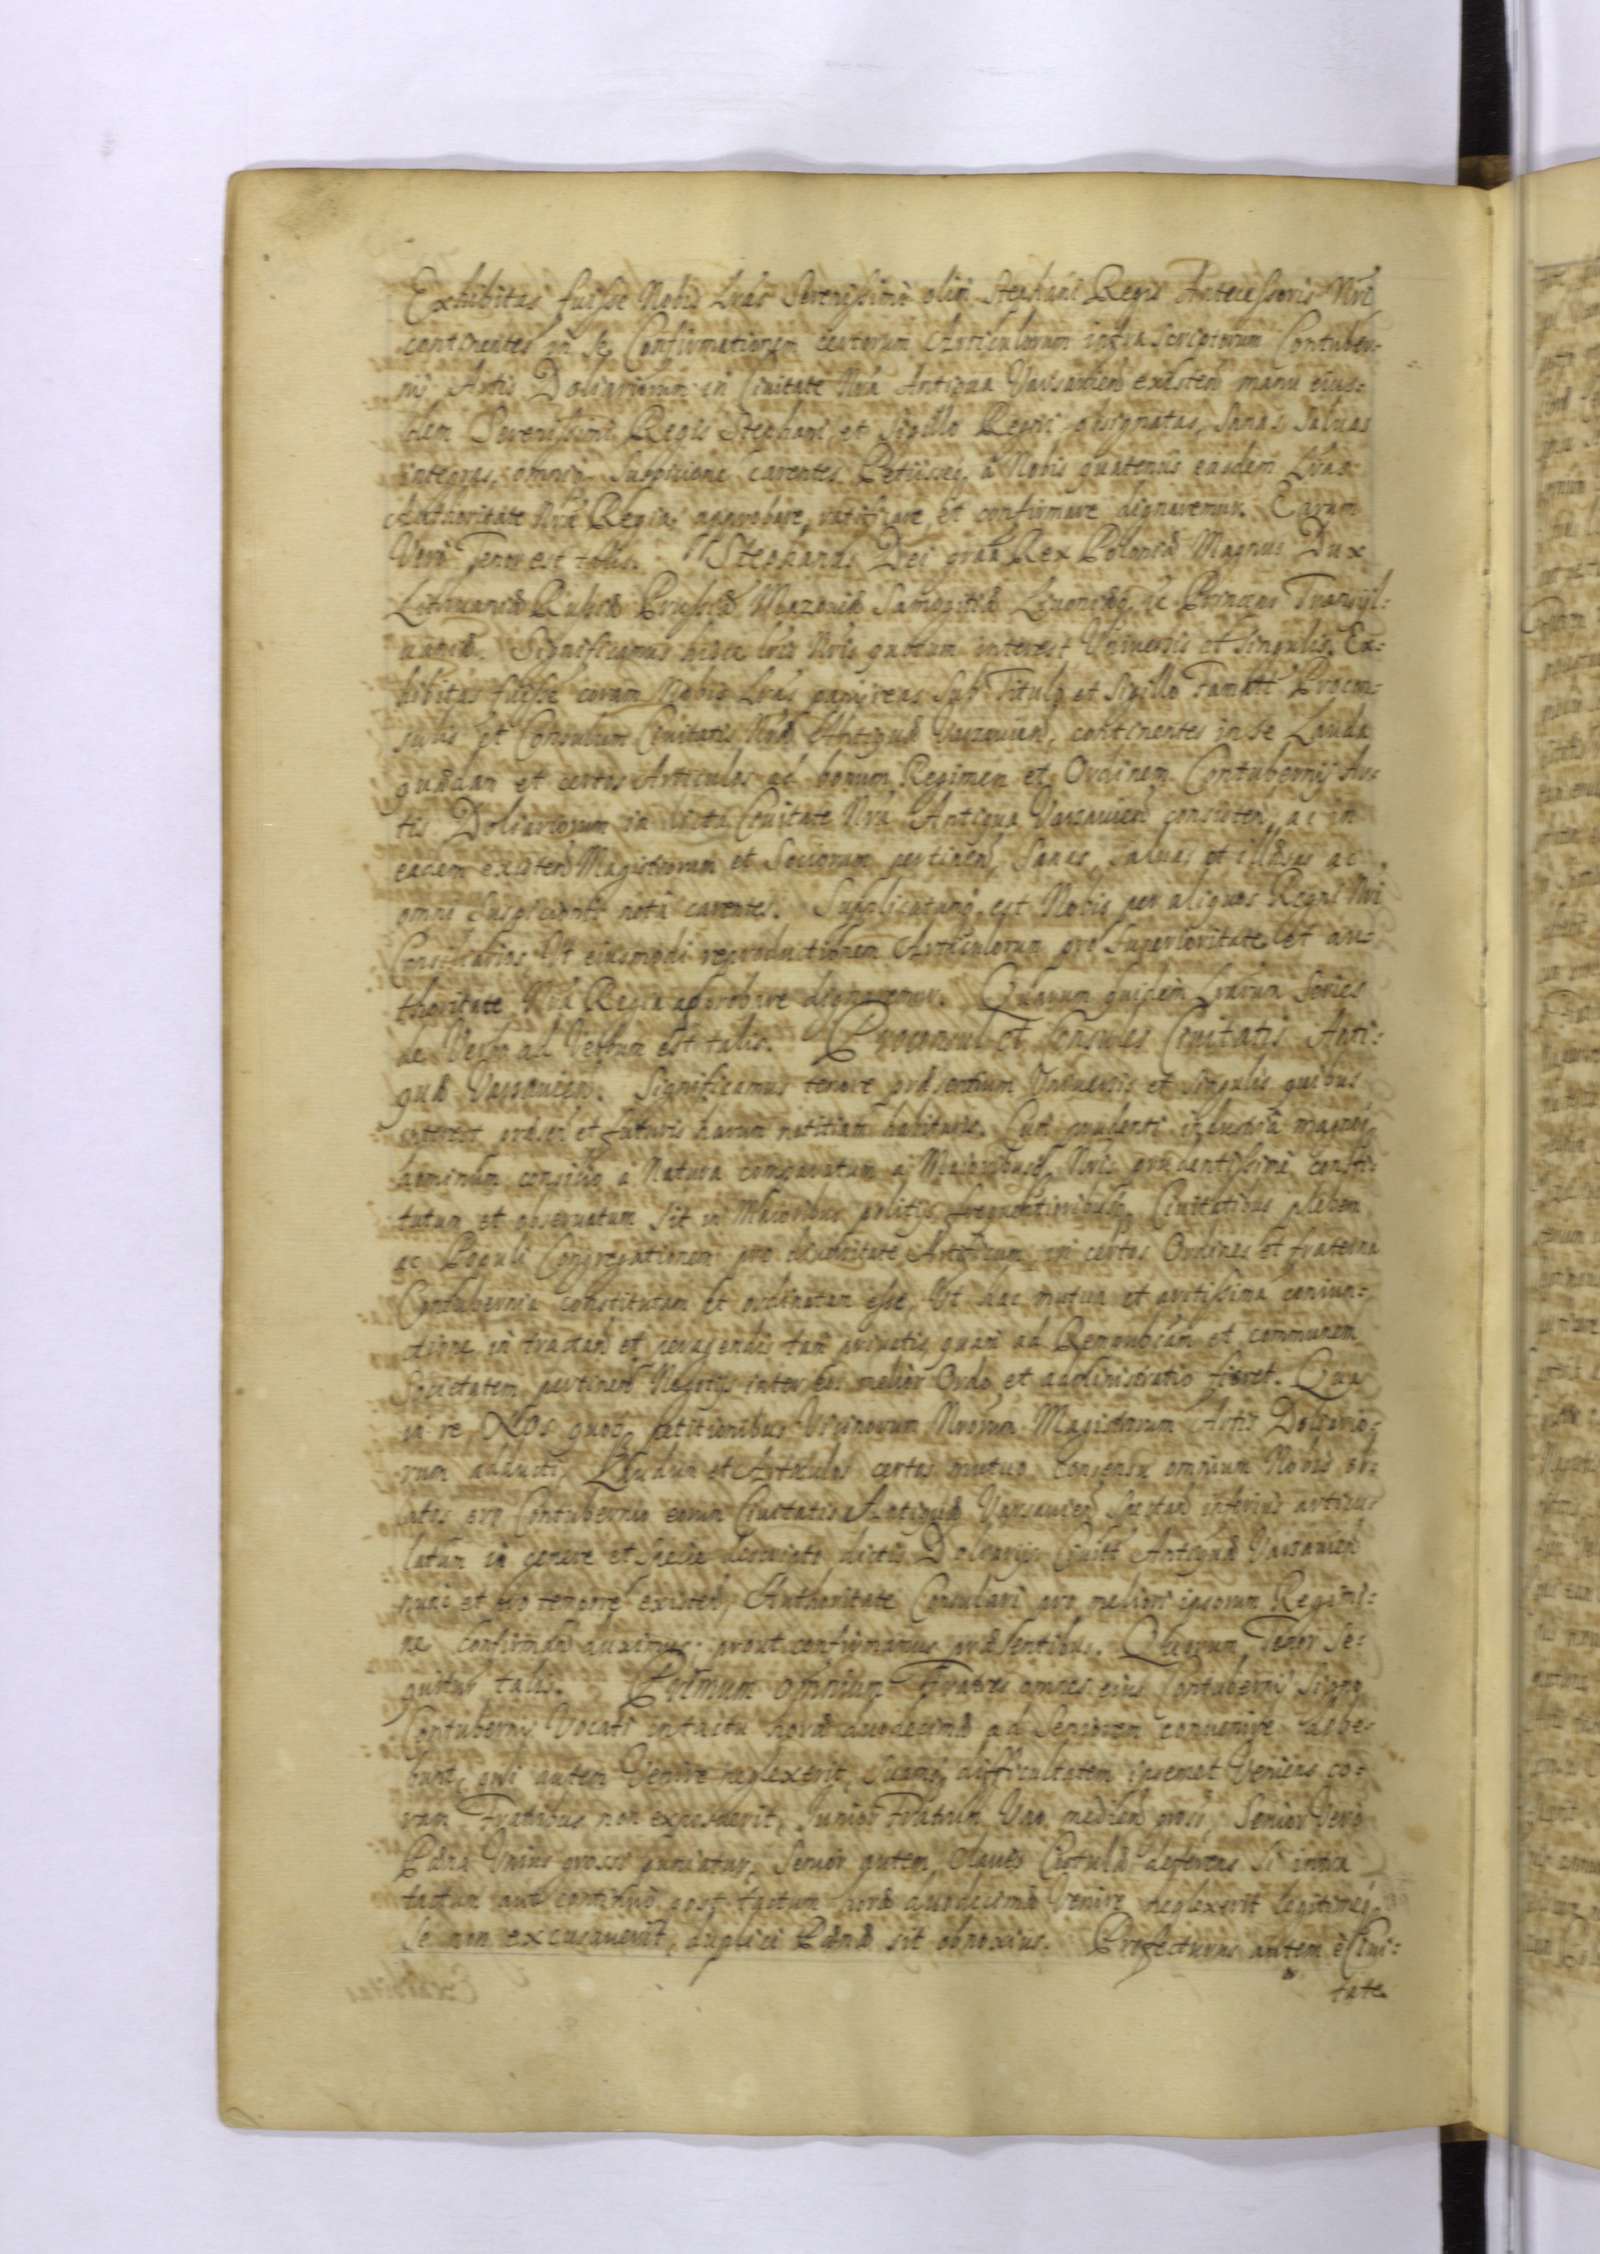 Exhibitas fuisse Nobis Lras Serenissimi olim Stephani Regis Antecessoris Nri
continentes in se Confirmationem certorum Articulorum infra scriptorum Contuber-
nij Artis Doliariorum in Civitate Nra Antiqua Varsavien existen manu eius-
dem Serenissimi Regis Stephani et Sigillo Regni consignatas, sanas salvas
integras, omniq suspicione carentes. Petiisseq a Nobis quatenus easdem Lras
Authoritate Nra Regia approbare, ratificare, et confirmare dignaremur. Earum
Vero Tenor est talis. Stephanus Dei graa Rex Poloniæ Magnus Dux
Lithuaniæ Russiæ Prussiæ Mazoviæ Samogitiæ Livoniæq ac Princeps Transyl-
vaniæ. Significamus hisce lris Nris quorum interest Universis et singulis. Ex-
hibitas fuisse coram Nobis Lras papireas sub Titulo et Sigillo Famatt Procon-
sulis et Consulum Civitatis Nræ Antiquæ Varsavien, continentes in se Lauda
quædam et certos Articulos ad bonum Regimen et Ordinem Contubernij Ar-
tis Doliariorum in dicta Civitate Nra Antiqua Varsavien consisten, ac in
eadem existen Magistrorum et Sociorum pertinen, Sanas, salvas et illæsas ac
omni Suspicionis nota carentes. Supplicatumq est Nobis per aliquos Regni Nri
Consiliarios Ut eiusmodi reproductionem Articulorum pro Superioritate et au-
thoritate Nra Regia approbare dignaremur. Quarum quidem Lrarum Series
de Verbo ad Verbum est talis. Proconsul et Consules Civitatis Anti-
quæ Varsavien. Significamus tenore præsentium Universis et singulis quibus
interest præsen et futuris harum notitiam habituris. Cum prudenti industria magnoq
hominum consilio a Natura comparatum a Maioribusq Nris prudentissime consti-
tutum et observatum sit in Maioribus politijs frequentioribusq Civitatibus plebem
ac Populi Congregationem pro diversitate Artificum in certos Ordines et fraterna
Contubernia constitutam et ordinatam esse, Ut hac mutua et arctissima coniun-
ctione in tractan et peragendis tam privatis quam ad Rempublicam et communem
Societatem pertinen Negotijs inter eos melior Ordo et administratio fieret. Qua
in re Nos quoq petitionibus Vicinorum Nrorum Magistrorum Artis Doliario-
rum adducti, Laudum et Articulos certos mutuo consensu omnium Nobis ob-
latos pro Contubernio eorum Civitatis Antiquæ Varsavien Spectan inferius articu-
latum in genere et specie descripto dictis Doliarijs Civitt Antiquæ Varsavien
nunc et pro tempore existen, Authoritate Consulari pro meliori ipsorum Regimi-
ne confirman duximus: prout confirmamus præsentibus. Quorum Tenor Se-
quitur talis. Primum omnium Fratres omnes eius Contubernij Signo
Contubernij Vocati in tactu horæ duodecimæ ad Seniorem convenire debe-
bunt, qui autem Venire neglexerit, suamq difficultatem ipsemet Veniens co-
ram Fratribus non exposuerit, Iunior Fratrum Uno medien gross, Senior Vero
Pæna Unius grossi puniatur, Senior autem Claves Cistulæ deferens si intra
tactum aut continuo post tactum horæ duodecimæ Venire neglexerit legitimeq
se non excusaverit, duplici Pænæ sit obnoxius. Profecturus autem è Civi-
tate.